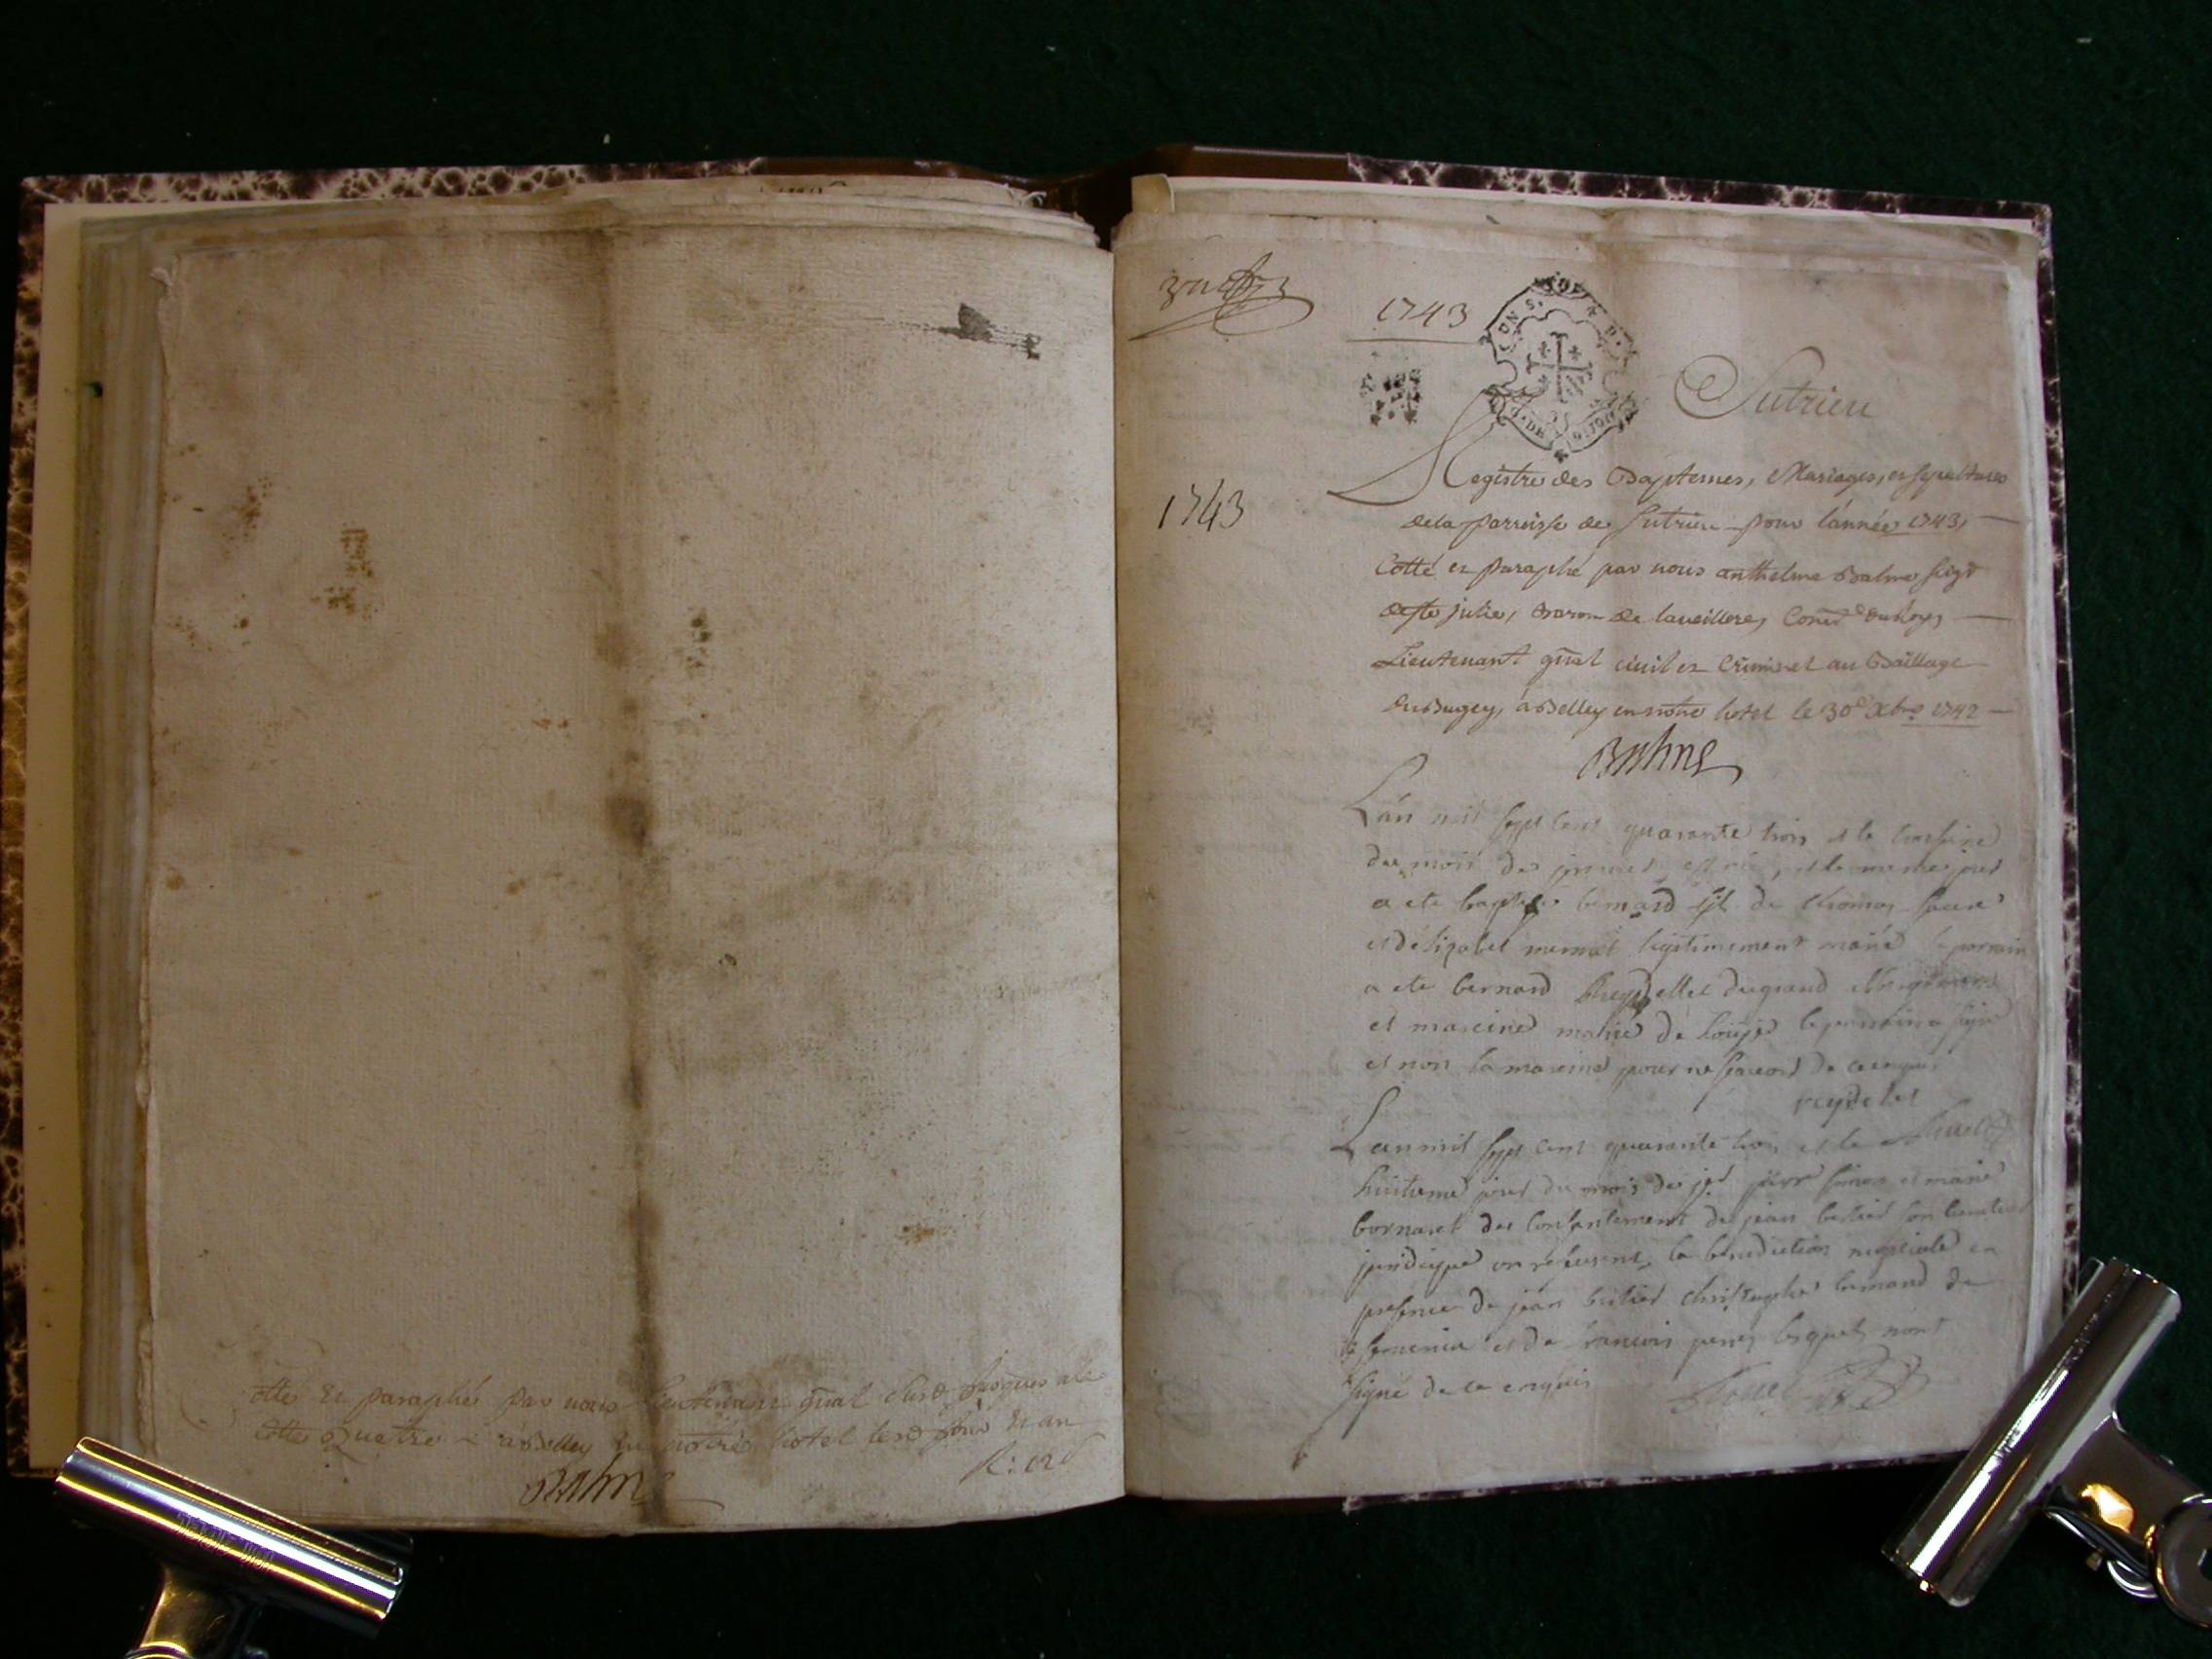 cotté et paraphé par nous Lieutenant gñal clerd jusques a la
cotte Quatre à Belley en notre hotel lesd jour et an
Balme
1743
Sutrieu
Registre des Baptemes, Mariages, et sepultures
1743
de la parroisse de Sutrieu pour l'année 1743,
Cotté et paraphé par nous anthelme Balme seigr
de ste julie, Baron de laveillere, Coner du Roy,
Lieutenant gñal civil et Criminel au Baillage
du Bugey, à Belley en notre hotel le 30e Xbre 1742
Balme
L'an mil sept cent quarante trois et le
du mois de janvier est né, et le meme jour
a ete baptisé bernard fil de thomas
et délizabet legitimement marié le parrain
a ete bernard Reydellet du grand
et mareine marie de le parrain a signé
et non la mareine pour ne scavoir de ce enquis
reydelet
L'an mil sept cent quarante trois et le
huitieme jour du mois de pierre simon et marie
bornaret du consentement de jean bertier son curateur
juridique on reçeusent la benediction nuptiale en
presence de jean bertier christophe de
et de francois lesquels nont
signé de ce enquis